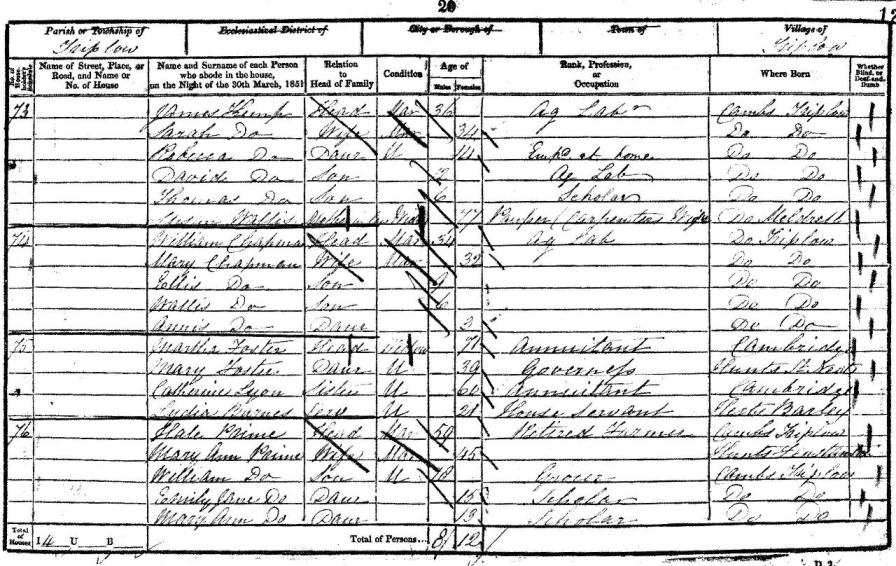 20
Parish or Township of Ecclesiastical District of City or Borough of Town of Village of
Triplow Triplow
No. of House-holder's Schedule Name of Street, Place, or Road, and Name or No. of House Name and Surname of each Person who abode in the house, on the Night of the 30th March, 1851 Relation to Head of Family Condition Age of Males Females Rank, Profession, or Occupation Where Born Whether Blind, or Deaf-and-Dumb
73 James Kemp Head Mar 36 Ag Labr Cambs Triplow
Sarah Do Wife Mar 34 Do Do
Rebecca Do Daur U 14 Empd at home Do Do
David Do Son Ag Lab Do Do
Thomas Do Son 6 Scholar Do Do
Susan Wallis 77 Pauper (Carpenters Do Meldreth
74 William Chapman Head Mar 34 Ag Lab Do Triplow
Mary Chapman Wife Mar 32 Do Do
Ellis Do Son 9 Do Do
Wallis Do Son 6 Do Do
Annis Do Daur 3 Do Do
75 Martha Foster Head Widow 71 Annuitant Cambridge
Mary Foster Daur U 39 Governess Hunts St Neots
Catherine Lyon Sister U 60 Annuitant Cambridge
Lydia Barnes Serv U 21 House Servant Herts Barley
76 Hale Prime Head Mar 59 Retired Farmer Cambs Triplow
Mary Ann Prime Wife Mar 45 Hunts
William Do Son U 18 Grocer Cambs Triplow
Emily Jane Do Daur 15 Scholar Do Do
Mary Ann Do Daur 13 Scholar Do Do
Total of Houses I 4 U B Total of Persons... 8 12